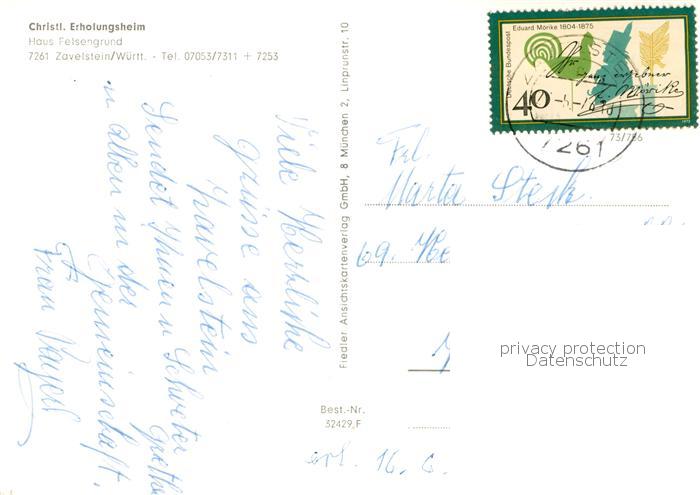 Christl. Erholungsheim
Haus Felsengrund
7261 Zavelstein/Württ. - Tel. 07053/7311 + 7253
Viele Herzliche
grüsse aus
Zavelstein
Sendet Ihnen u Schwester
u allen in der
Gemeinschaft.
Frau
Fiedler Ansichtskartenverlag GmbH, 8 München 2, Linprunstr. 10
Best.-Nr.
32429,F
Eduard Mörike 1804-1875
Deutsche Bundespost
40
7261
73/756
Frl.
Marta Steck.
69. He
erh. 16. 6.
privacy protection
Datenschutz